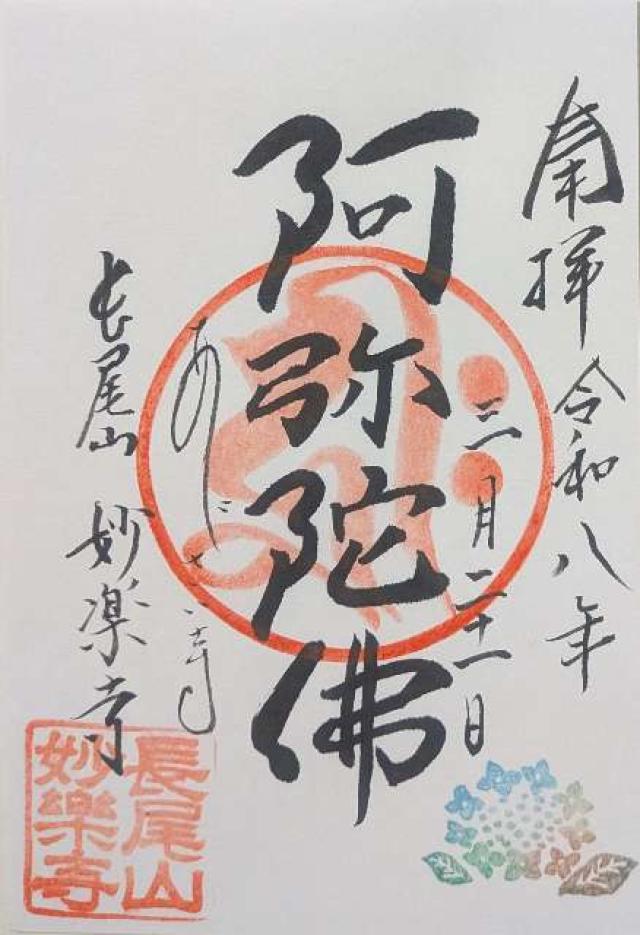 奉拝 令和八年
三月二十一日
阿弥陀佛
あじさい寺
長尾山 妙楽寺
長尾山
妙樂寺